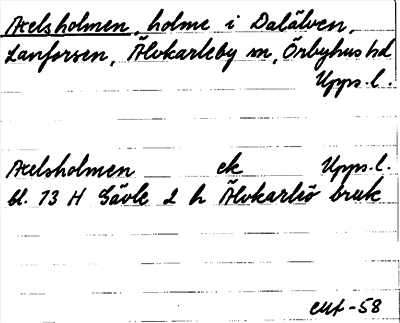 Axelsholmen, holme i Dalälven,
Lanforsen, Älvkarleby sn, Örbyhus hd
Upps. l.
Axelsholmen ek Upps. l.
bl. 13 H Gävle 2 h Älvkarleö bruk
-58